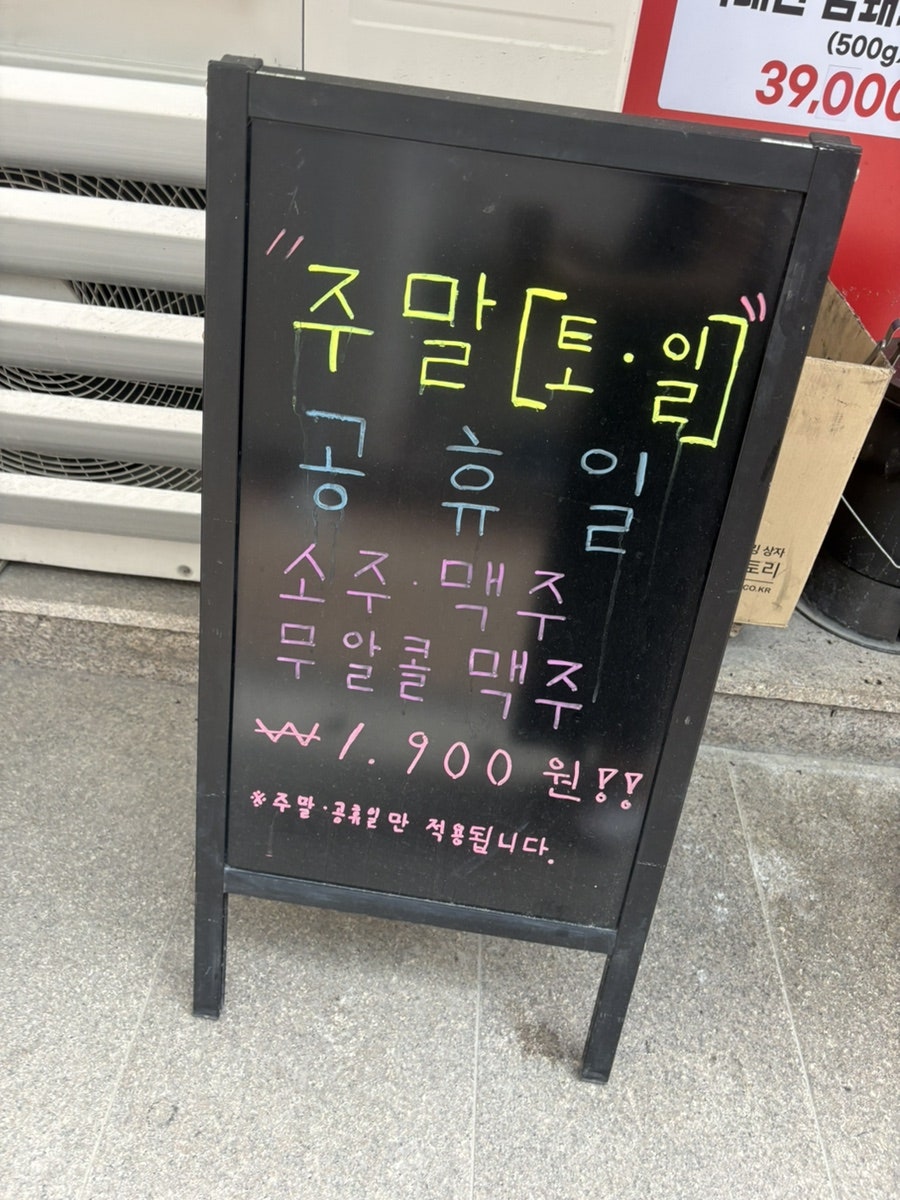 (500g
39,000
" 주말 [토·일] "
공휴일
소주·맥주
무알콜 맥주
₩1.900원!!
※주말·공휴일만 적용됩니다.
상자
토리
CO.KR